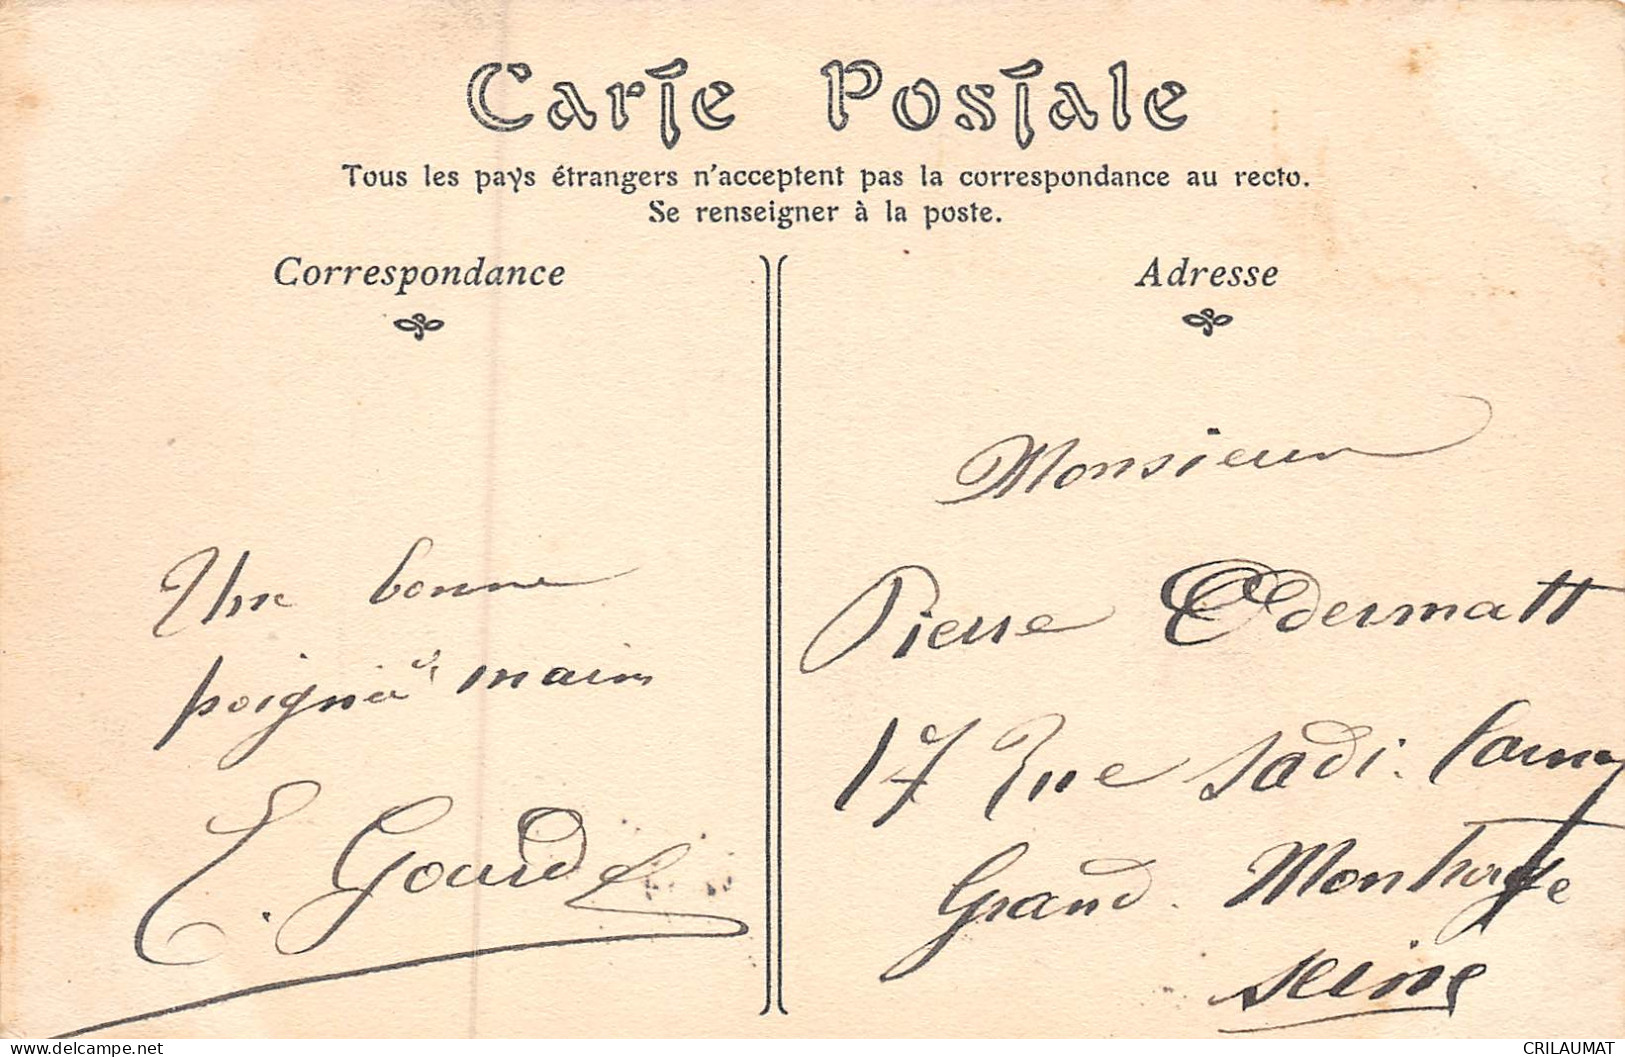 Carte Postale
Tous les pays étrangers n'acceptent pas la correspondance au recto.
Se renseigner à la poste.
Correspondance
Adresse
Une bonne
poignée main
E. Gourdel
Monsieur
Pierre Odermatt
17 Rue Sadi. Carnot
Grand. Montrouge
Seine
https://www.delcampe.net
CRILAUMAT